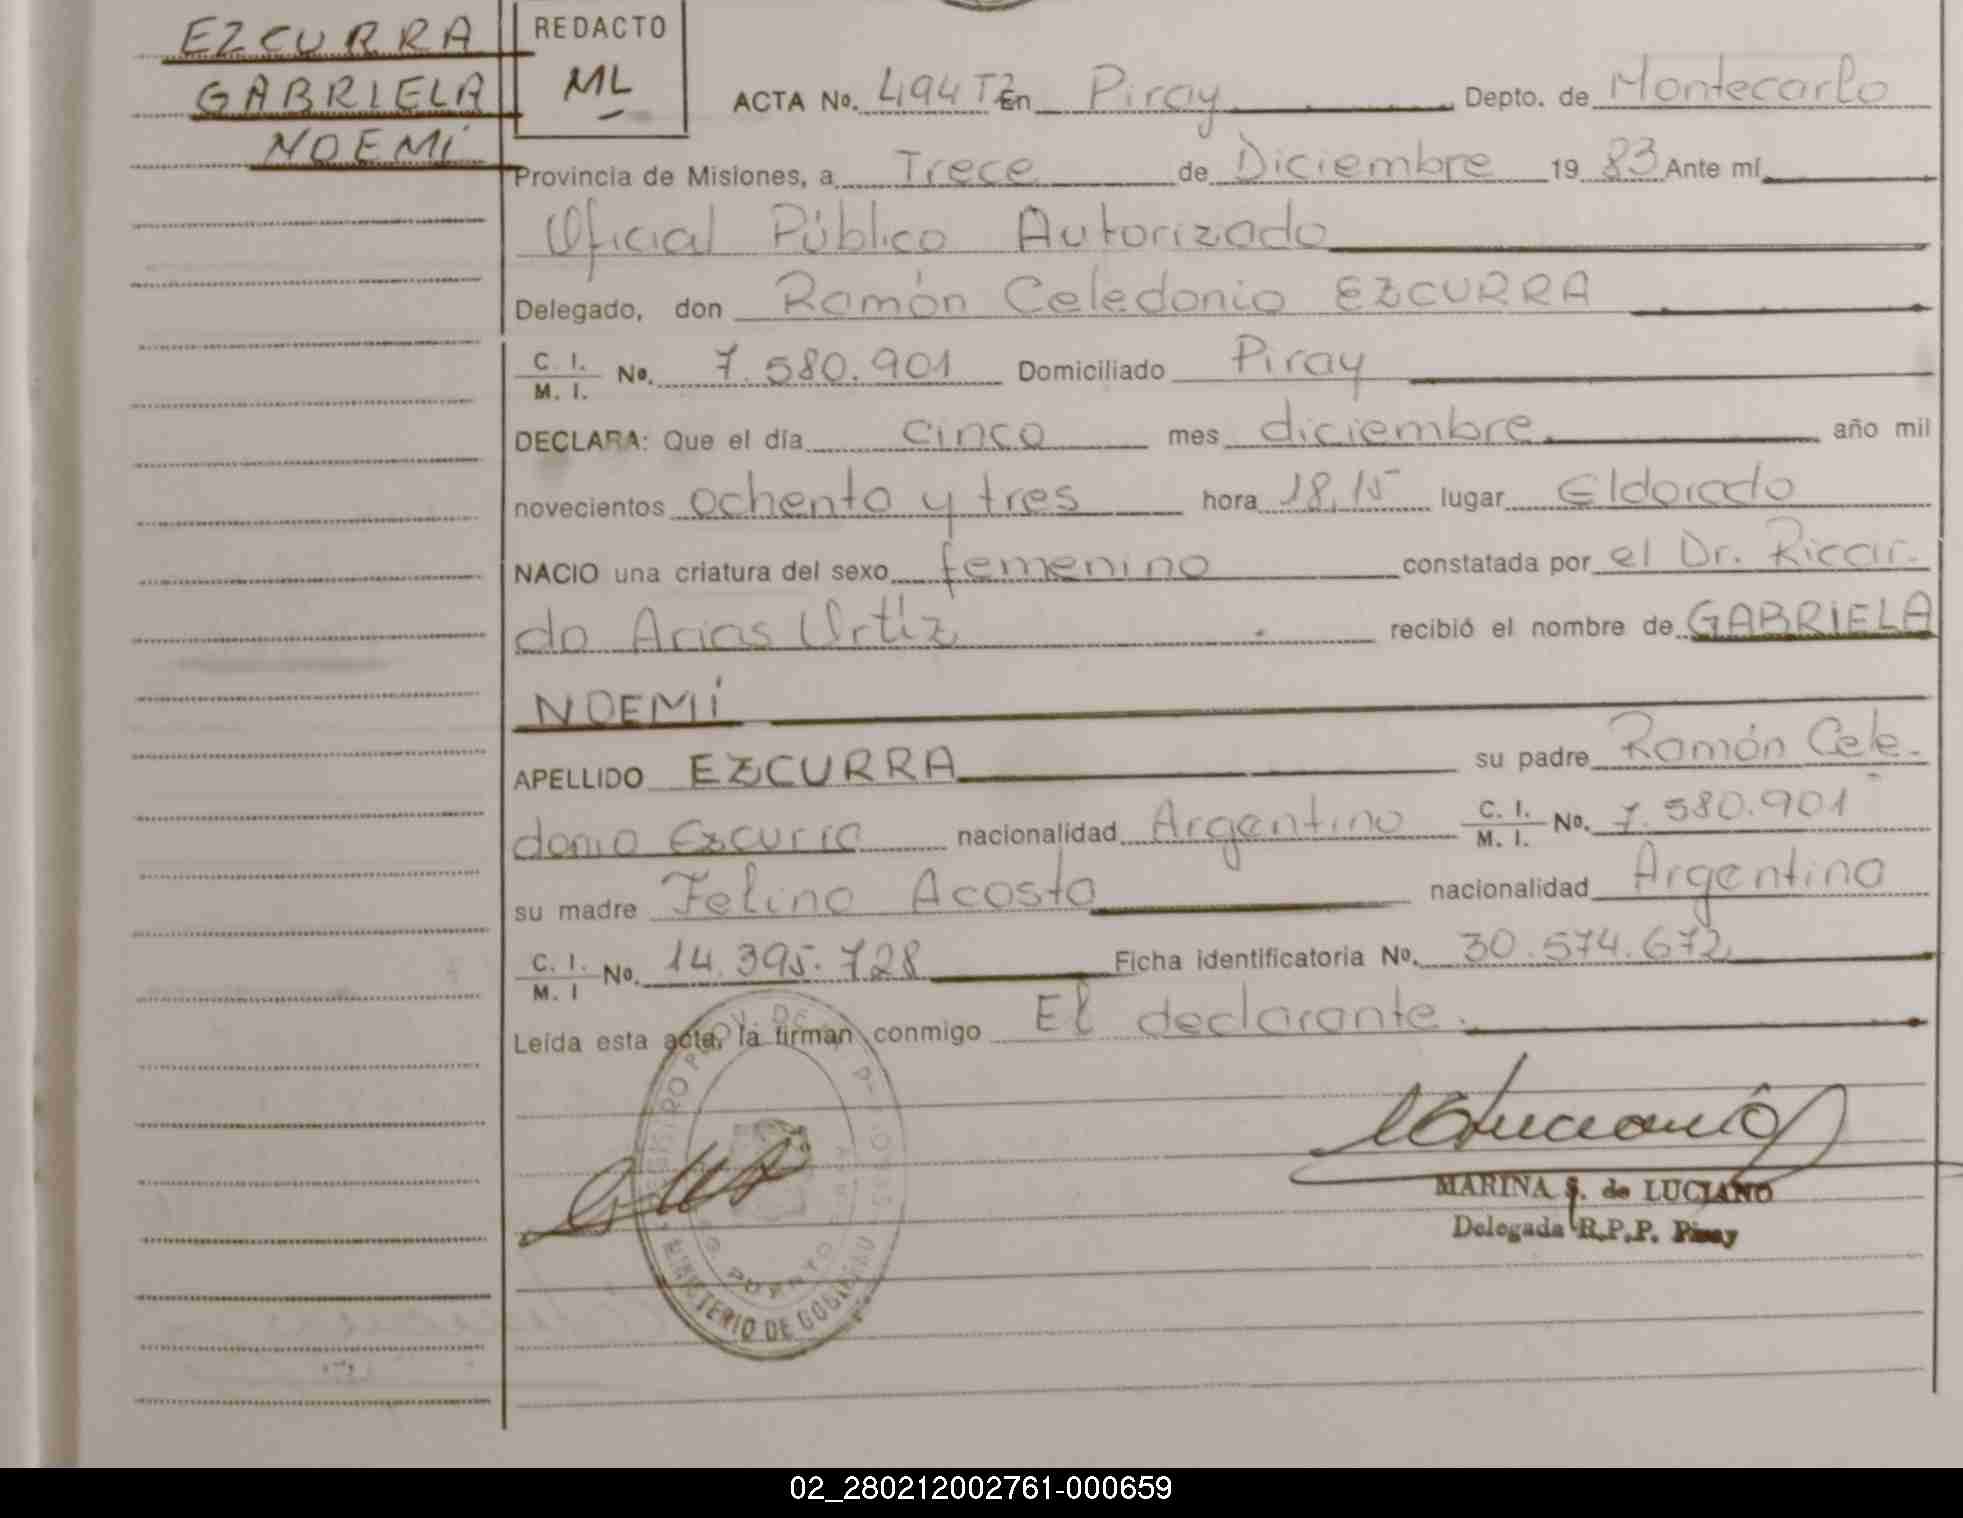 EZCURRA
GABRIELA
NOEMÍ
REDACTO
ML
ACTA No. 494 T2 En Piray Depto. de Montecarlo
Provincia de Misiones, a Trece de Diciembre 1983 Ante mí
Oficial Público Autorizado
Delegado, don Ramón Celedonio EZCURRA
C. I. / M. I. No. 7.580.901 Domiciliado Piray
DECLARA: Que el día cinco mes diciembre año mil
novecientos ochenta y tres hora 18,15 lugar Eldorado
NACIO una criatura del sexo femenino constatada por el Dr. Ricar-
do Arias Ortiz recibió el nombre de GABRIELA
NOEMÍ
APELLIDO EZCURRA su padre Ramón Cele-
donio Ezcurra nacionalidad Argentino C. I. / M. I. No. 7.580.901
su madre Felina Acosta nacionalidad Argentina
C. I. / M. I No. 14.395.728 Ficha identificatoria No. 30.574.672
Leída esta acta, la firman conmigo El declarante.
MINISTERIO DE GOBIERNO
PUERTO PIRAY
MARINA S. de LUCIANO
Delegada R.P.P. Piray
02_280212002761-000659